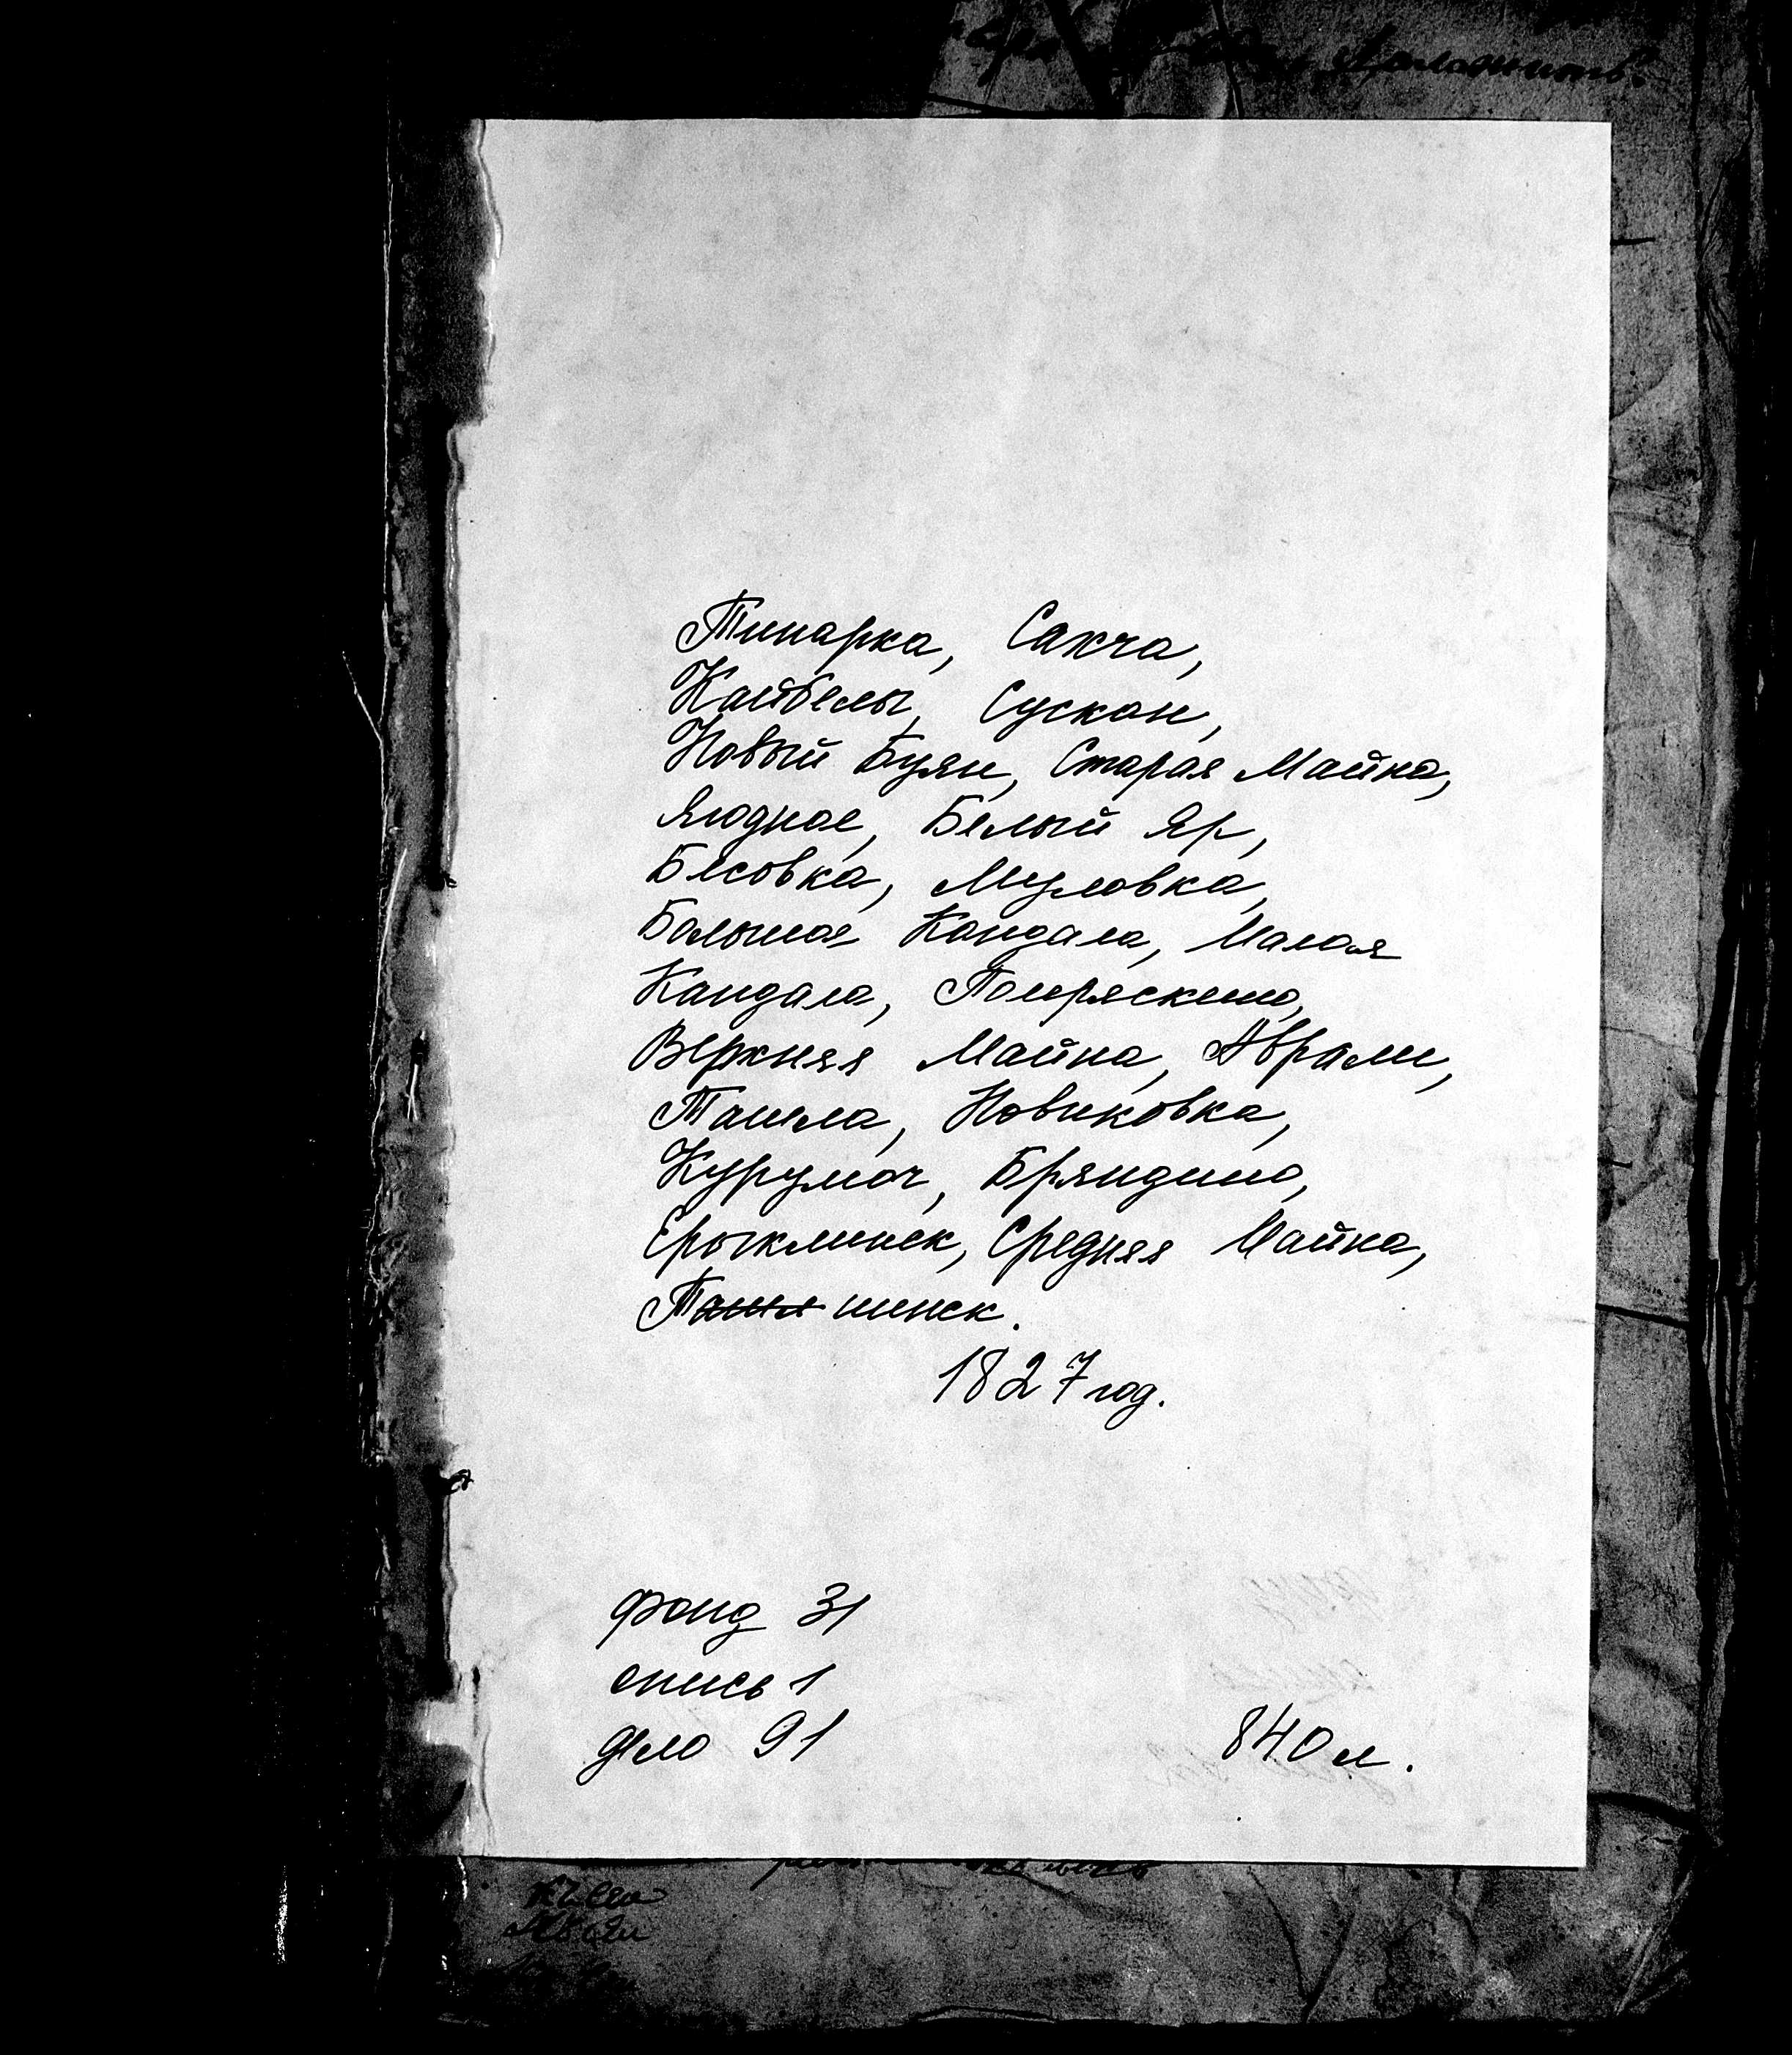 Тинарка, Сакча,
Кайбелы, Сускан,
Новый Буян, Старая Майна,
Ягодное, Белый Яр,
Бесовка, Мулловка,
Большая Кандала, Малая
Кандала, Помряскино,
Верхняя Майна, Аврали,
Ташла, Новиковка,
Курумоч, Бряндино,
Ерыклинск, Средняя Майна,
Ташл шинск.
1827 год.
фонд 31
опись 1
дело 91
840 л.